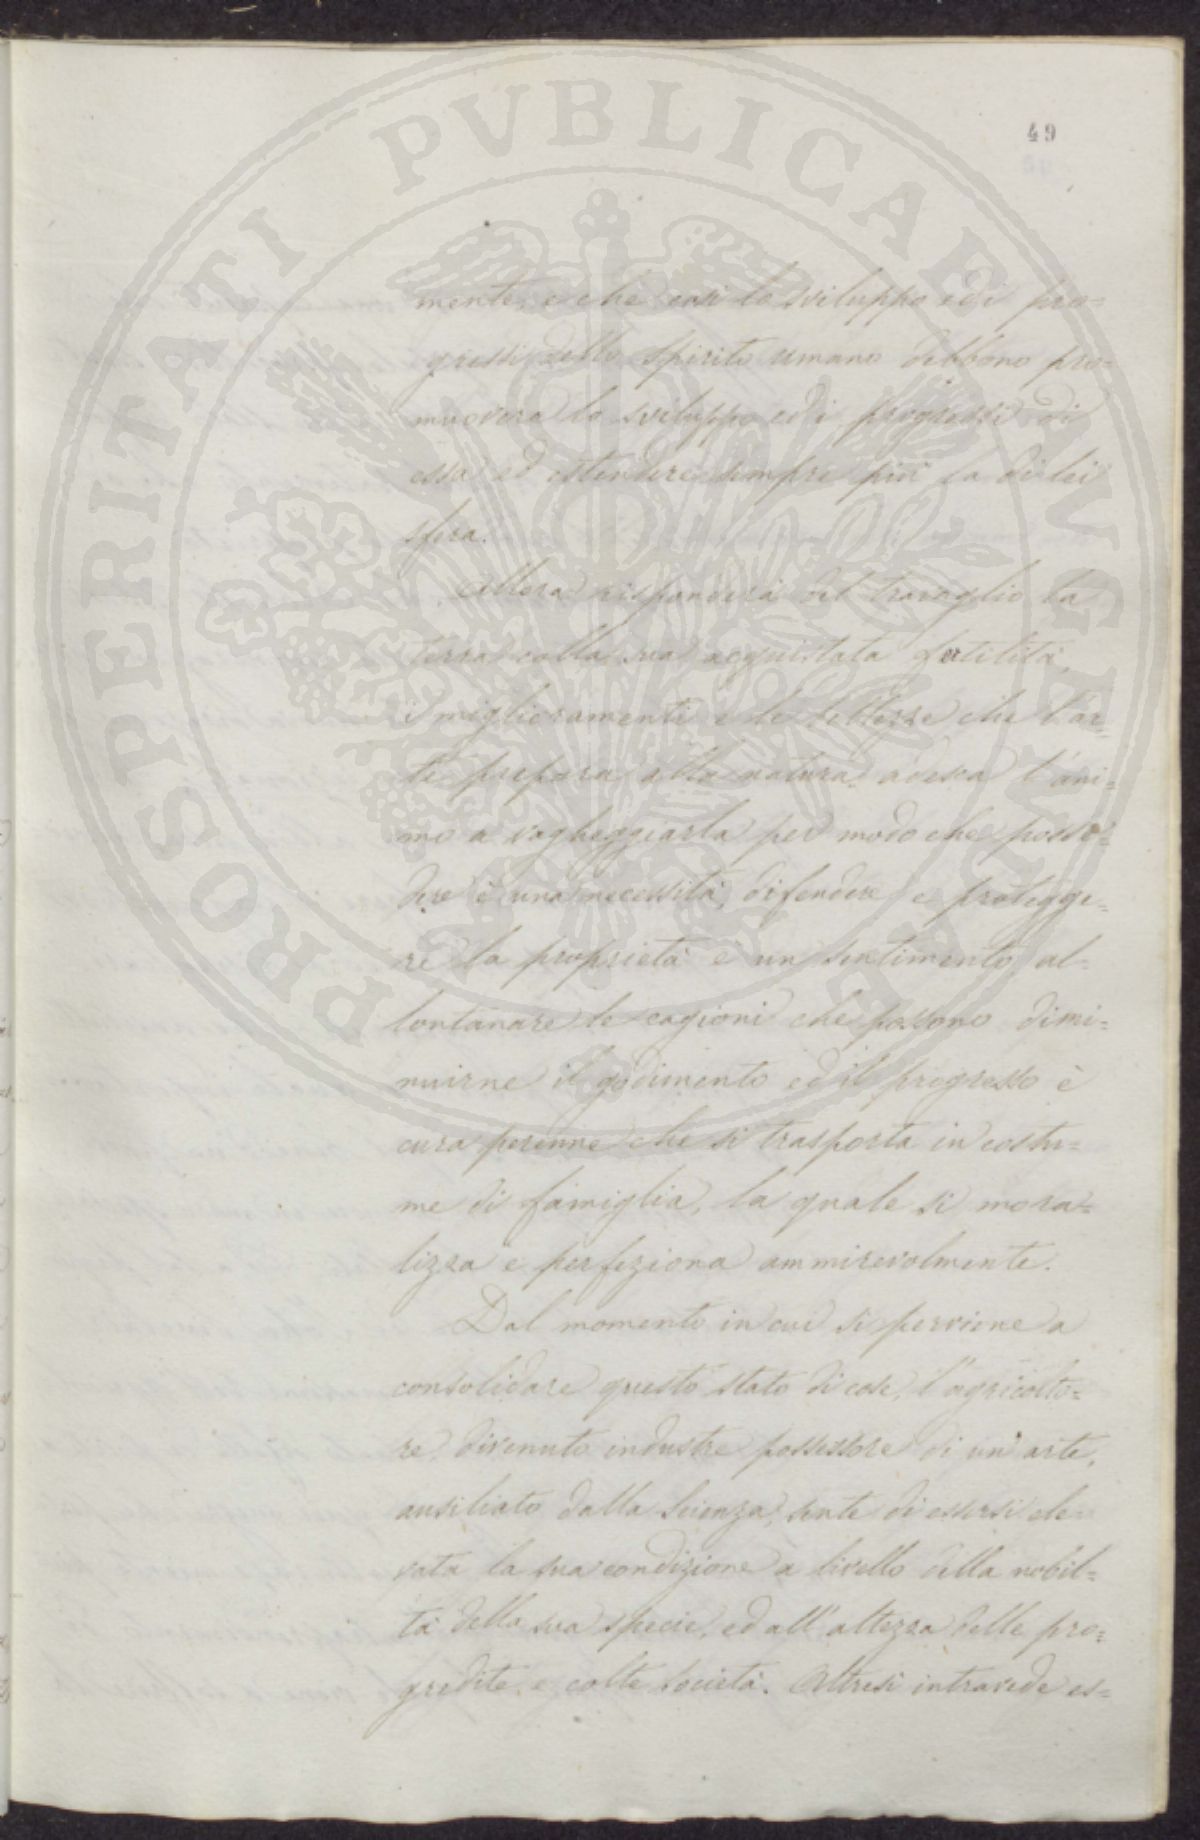 49
PROSPERITATI PVBLICAE AVGENDAE
mente, e che così lo sviluppo ed i pro=
gressi dello spirito umano debbono pro=
muovere lo sviluppo ed i progressi di
essa ed estendere sempre più la di lei
sfera.
Allora risponderà del travaglio la
terra colla sua acquistata fertilità,
i miglioramenti e le bellezze che l'ar=
te prepara alla natura adesca l'ani=
mo a vagheggiarla per modo che posse=
dere è una necessità, difendere e protegge=
re la proprietà è un sentimento, al=
lontanare le cagioni che possono dimi=
nuirne il godimento ed il progresso è
cura perenne che si trasporta in costu=
me di famiglia, la quale si mora=
lizza e perfeziona ammirevolmente.
Dal momento in cui si perviene a
consolidare questo stato di cose, l'agricolto=
re, divenuto industre possessore di un'arte,
ausiliato dalla Scienza, sente di essersi ele
vata la sua condizione a livello della nobil=
tà della sua specie, ed all'altezza delle pro=
gredite e colte Società. Altresì intravede es=